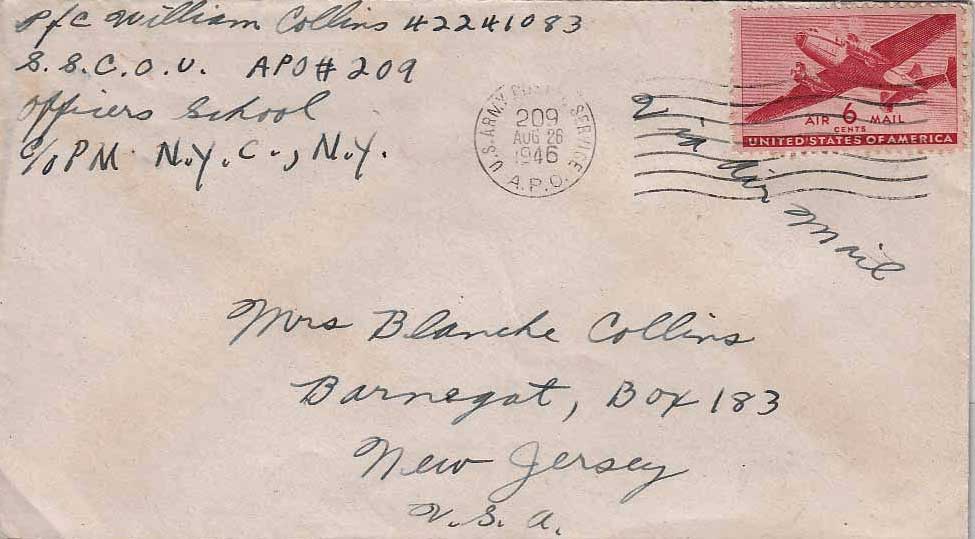 Pfc William Collins 42241083
S.S.C.O.U. APO# 209
Officers School
c/o PM N.Y.C., N.Y.
U.S. ARMY POSTAL SERVICE
209
AUG 26
1946
A.P.O.
AIR 6 MAIL
CENTS
UNITED STATES OF AMERICA
Via Air Mail
Mrs Blanche Collins
Barnegat, Box 183
New Jersey
U.S.A.